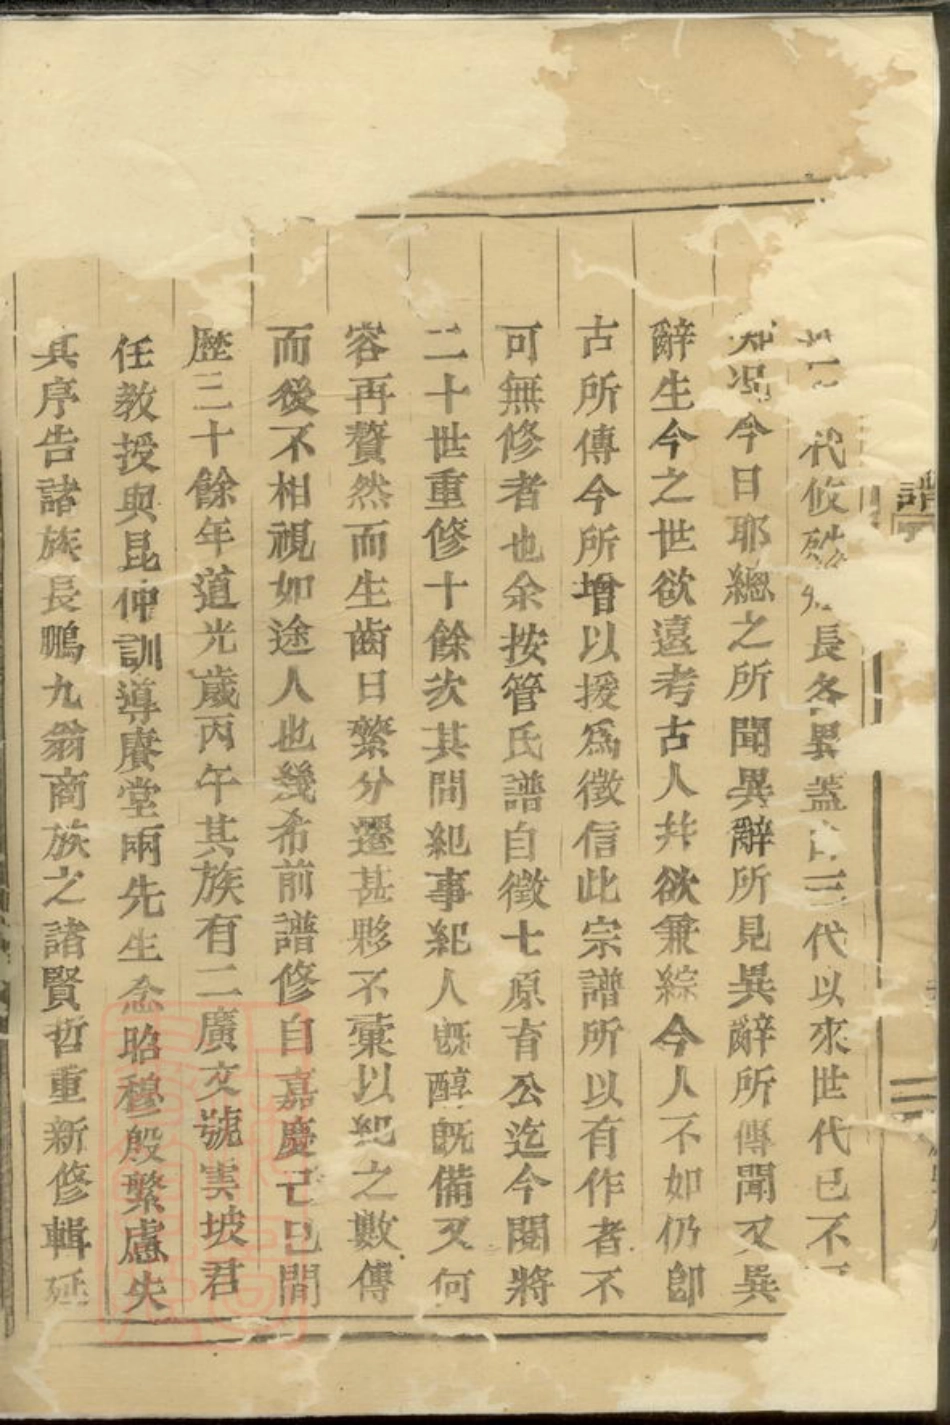 代攸殊 長各異蓋自三代以來世代已不
況今日耶總之所聞異辭所見異辭所傳聞又異
辭生今之世欲遠考古人并欲兼綜今人不如仍即
古所傳今所增以援爲徵信此宗譜所以有作者不
可無修者也余按管氏譜自徵七原育公迄今閱將
二十世重修十餘次其間紀事紀人既醇既備又何
容再贅然而生齒日繁分遷甚夥不彙以紀之數傳
而後不相視如途人也幾希前譜修自嘉慶己巳間
歷三十餘年道光歲丙午其族有二廣文號雲坡君
任教授與昆仲訓導賡堂兩先生念昭穆殷繁慮失
其序告諸族長鵬九翁商族之諸賢哲重新修輯延